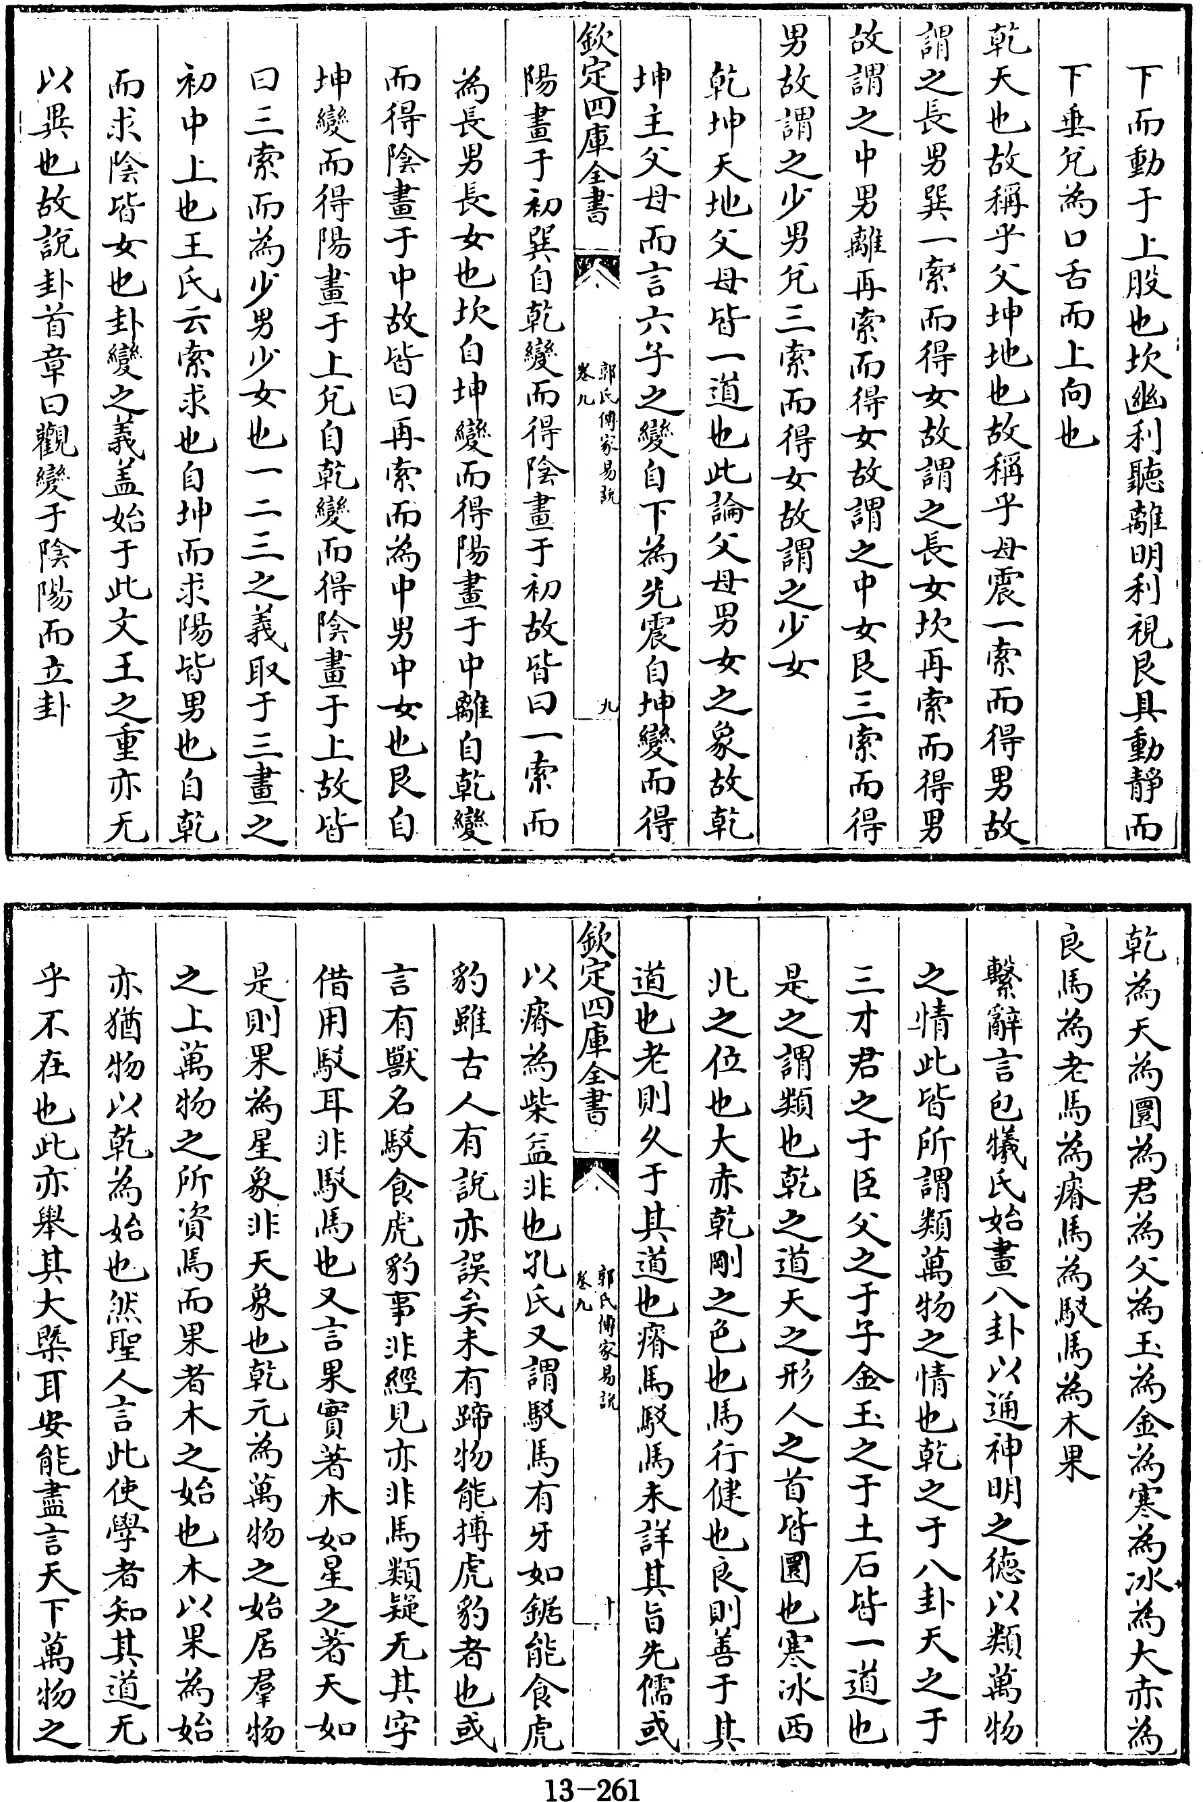 下而動于上股也坎幽利聽離明利視艮具動靜而
下垂兊為口舌而上向也
乾天也故稱乎父坤地也故稱乎母震一索而得男故
謂之長男巽一索而得女故謂之長女坎再索而得男
故謂之中男離再索而得女故謂之中女艮三索而得
男故謂之少男兊三索而得女故謂之少女
乾坤天地父母皆一道也此論父母男女之象故乾
坤主父母而言六子之變自下為先震自坤變而得
欽定四庫全書
郭氏傳家易說
卷九
九
陽畫于初巽自乾變而得陰畫于初故皆曰一索而
為長男長女也坎自坤變而得陽畫于中離自乾變
而得陰畫于中故皆曰再索而為中男中女也艮自
坤變而得陽畫于上兊自乾變而得陰畫于上故皆
曰三索而為少男少女也一二三之義取于三畫之
初中上也王氏云索求也自坤而求陽皆男也自乾
而求陰皆女也卦變之義盖始于此文王之重亦无
以異也故說卦首章曰觀變于陰陽而立卦
乾為天為圜為君為父為玉為金為寒為冰為大赤為
良馬為老馬為瘠馬為駁馬為木果
繫辭言包犧氏始畫八卦以通神明之德以類萬物
之情此皆所謂類萬物之情也乾之于八卦天之于
三才君之于臣父之于子金玉之于土石皆一道也
是之謂類也乾之道天之形人之首皆圜也寒冰西
北之位也大赤乾剛之色也馬行健也良則善于其
道也老則久于其道也瘠馬駁馬未詳其旨先儒或
欽定四庫全書
郭氏傳家易說
卷九
十
以瘠為柴益非也孔氏又謂駁馬有牙如鋸能食虎
豹雖古人有說亦誤矣未有蹄物能搏虎豹者也或
言有獸名駁食虎豹事非經見亦非馬類疑无其字
借用駁耳非駁馬也又言果實著木如星之著天如
是則果為星象非天象也乾元為萬物之始居羣物
之上萬物之所資焉而果者木之始也木以果為始
亦猶物以乾為始也然聖人言此使學者知其道无
乎不在也此亦舉其大槩耳安能盡言天下萬物之
13-261